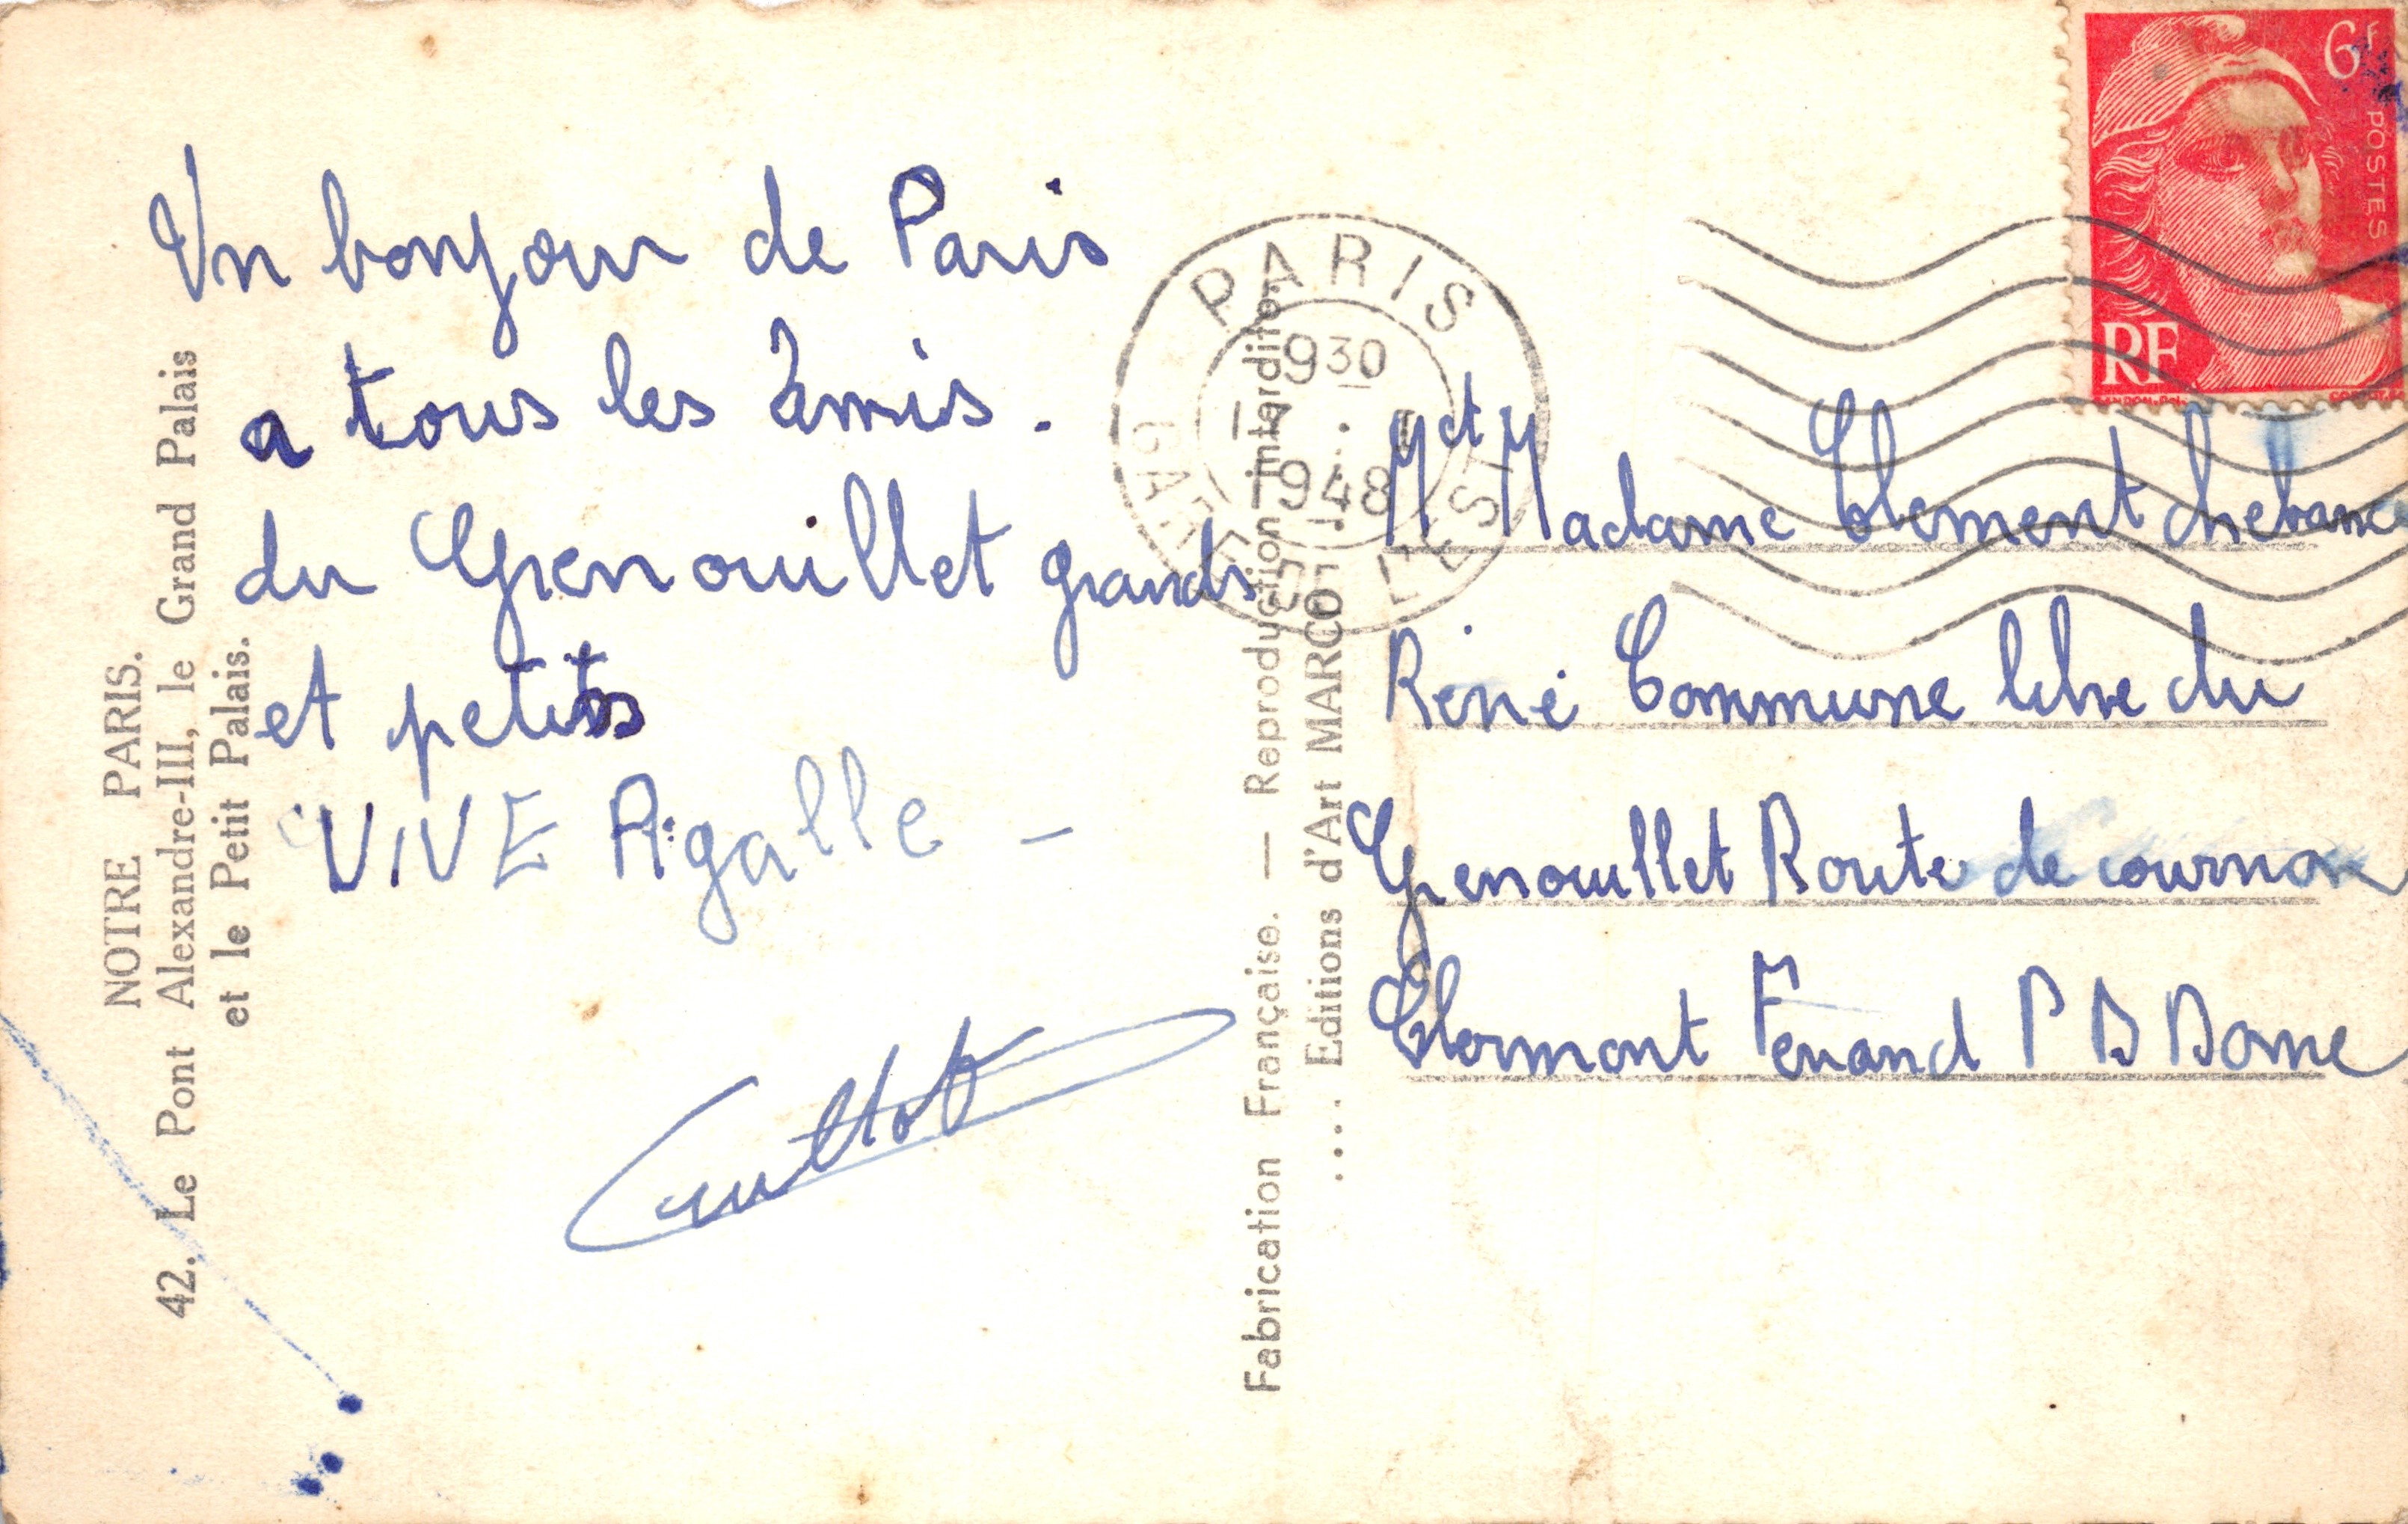 NOTRE PARIS.
42. Le Pont Alexandre-III, le Grand Palais
et le Petit Palais.
Un bonjour de Paris
a tous les amis.
du Grenouillet grands
et petits
VIVE Pigalle -
Fabrication Française. — Reproduction interdite.
.... Editions d'Art MARCO
PARIS
9 30
1948
GARE DE L'EST
6F
POSTES
RF
M et Madame Clement
René Commune libre du
Grenouillet Route de cournon
Clermont Ferrand P D Dome